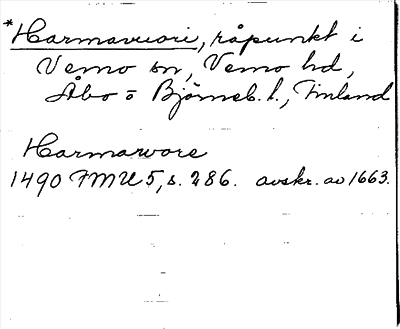 *Harmavuori, råpunkt i
Vemo sn, Vemo hd,
Åbo o Björneb. l., Finland
Harmawore
1490 FMU 5, s. 286. avskr. av 1663.